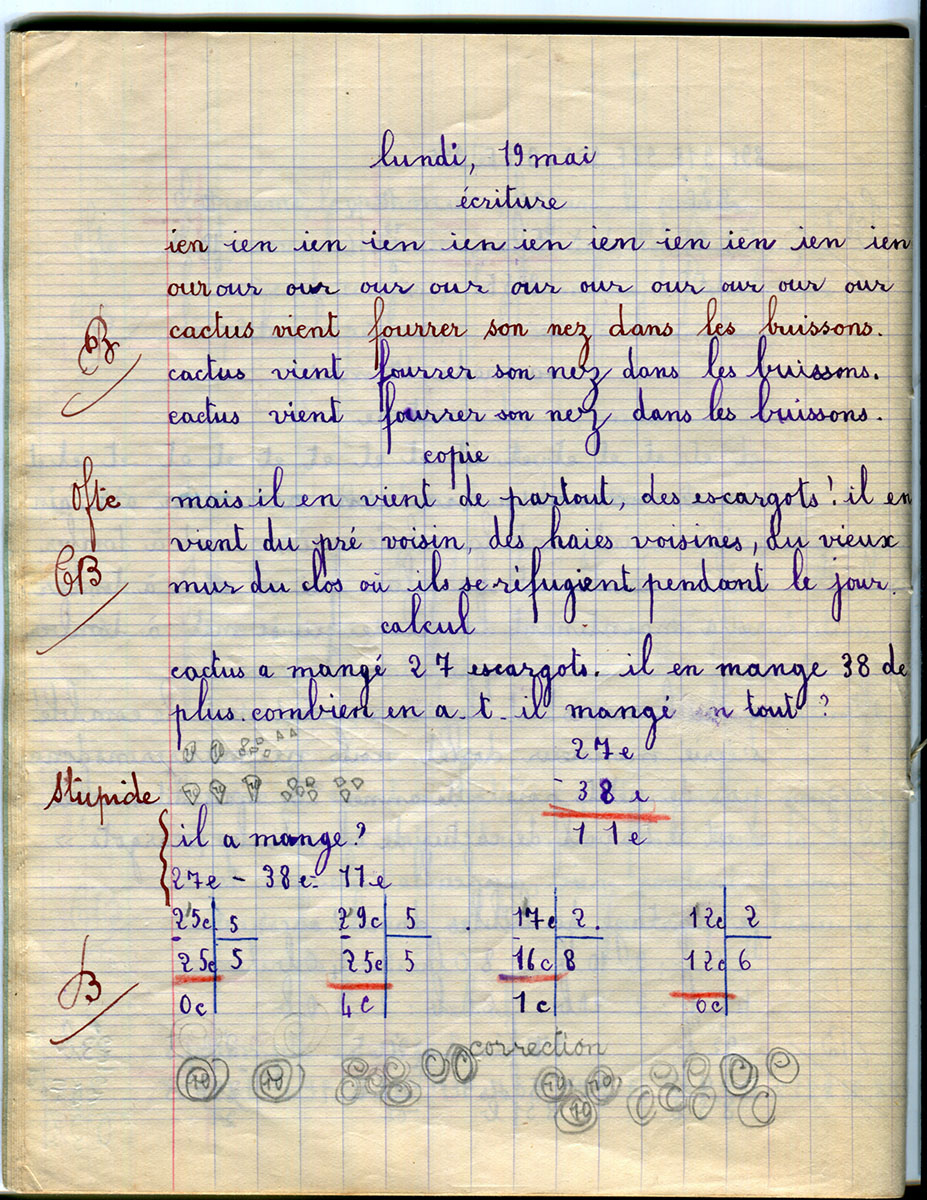 lundi, 19 mai
écriture
ien ien ien ien ien ien ien ien ien ien ien
our our our our our our our our our our our
B
cactus vient fourrer son nez dans les buissons.
cactus vient fourrer son nez dans les buissons.
cactus vient fourrer son nez dans les buissons.
copie
mais il en vient de partout, des escargots! il en
vient du pré voisin, des haies voisines, du vieux
TB
mur du clos où ils se réfugient pendant le jour.
calcul
cactus a mangé 27 escargots. il en mange 38 de
plus. combien en a. t. il mangé n tout?
27e
- 38 e
11e
Stupide
il a mange?
27e - 38e = 11e
25c 5 29c 5 17c 2. 12c 2
25c 5 25c 5 16c 8 12c 6
B
0c 4c 1c 0c
correction
10 10 10 10
10